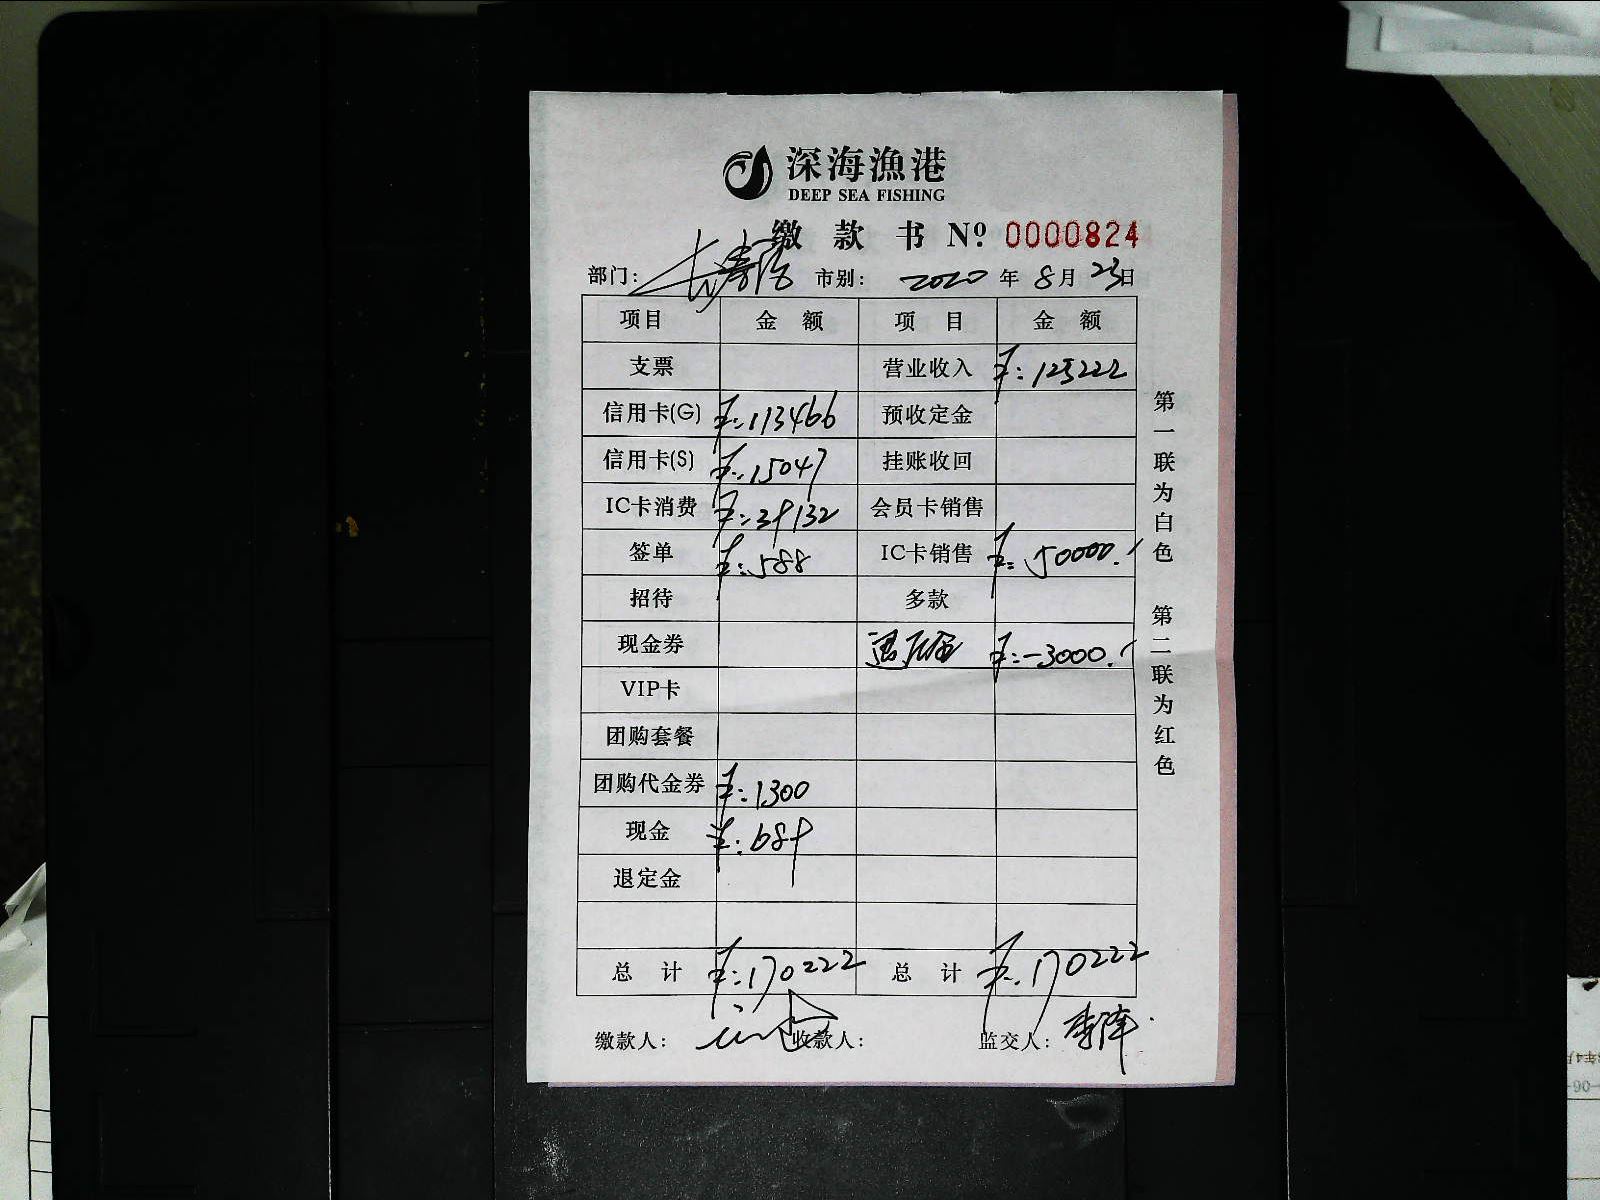 深海漁港
DEEP SEA FISHING
缴 款 书 Nº 0000824
部门: 长寿路 市别: 2020 年 8 月 23 日
项目 金 额 项 目 金 额
支票 营业收入 ¥:123222
信用卡(G) ¥:113466 预收定金
信用卡(S) ¥:15047 挂账收回
IC卡消费 ¥:39132 会员卡销售
签单 ¥:588 IC卡销售 ¥:50000.
招待 多款
现金券 退定金 ¥:-3000.
VIP卡
团购套餐
团购代金券 ¥:1300
现金 ¥:689
退定金
总 计 ¥:170222 总 计 ¥:170222
缴款人: 收款人: 监交人:
第一联为白色 第二联为红色